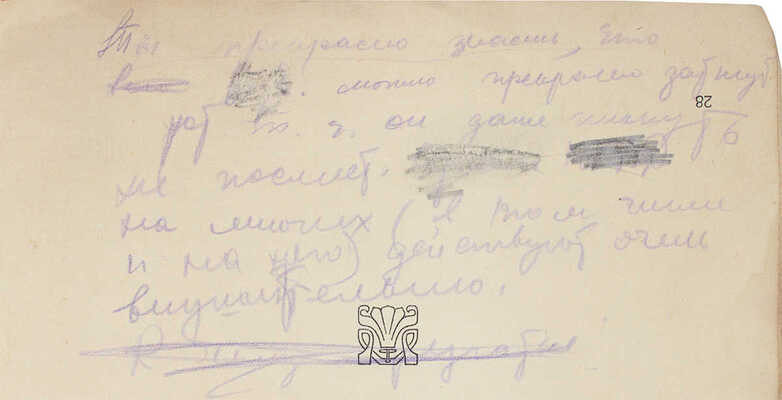 Ты прекрасно знаешь, что
можно прекрасно заткнуть
рот т. д. он даже пикнуть
не посмеет.
на многих (в том числе
и на него) действуют очень
внушительно.
28